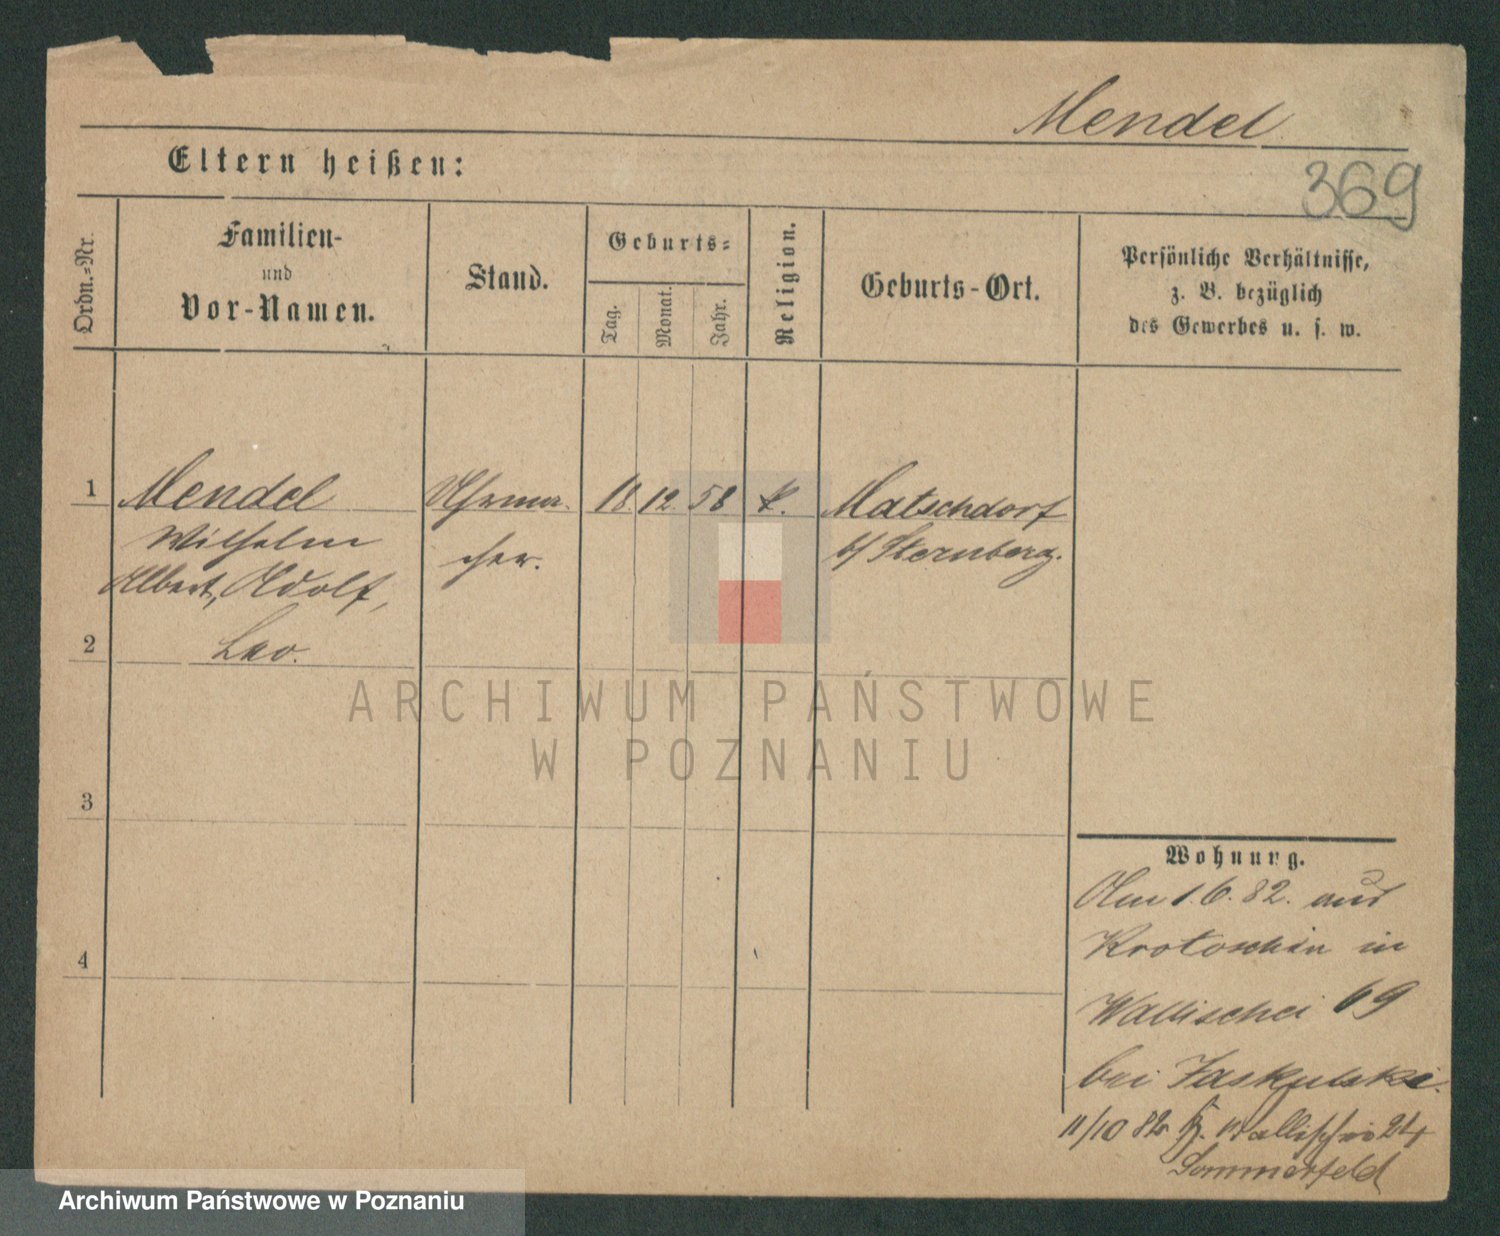 Mendel
369
Eltern heißen:
Ordn.-Nr.
Familien-
und
Vor-Namen.
Stand.
Geburts-
Tag.
Monat.
Jahr.
Religion.
Geburts-Ort.
Persönliche Verhältnisse,
z. B. bezüglich
des Gewerbes u. s. w.
1
Mendel
Wilhelm
Albert, Adolf,
Leo.
Uhrma
cher.
18. 12. 58
k.
Matschdorf
b/ Sternberg.
2
3
4
Wohnung.
Am 1.6.82. aus
Krotoschin in
Wallischei 69
bei Jaskulski.
11/10 82. Wallischei 24
Sommerfeld
ARCHIWUM PAŃSTWOWE
W POZNANIU
Archiwum Państwowe w Poznaniu